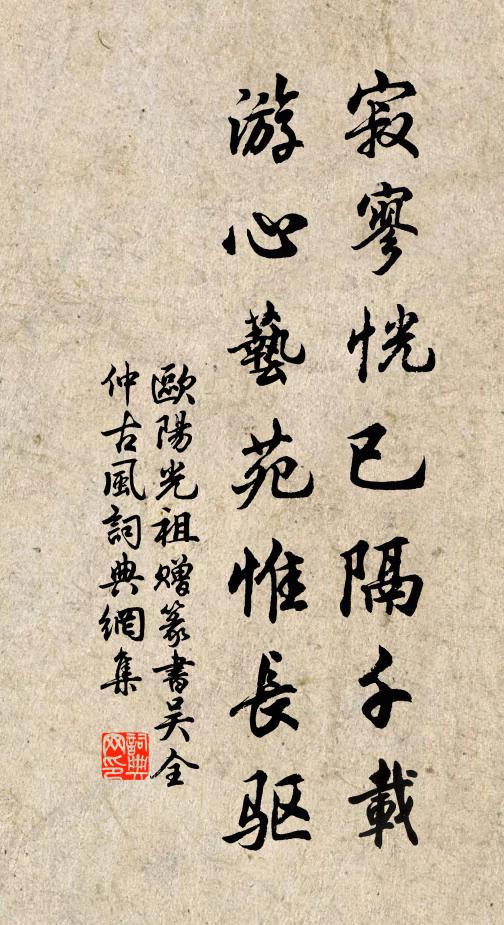 寂寥恍已隔千載
游心藝苑惟長驱
歐陽光祖贈篆書吳全
仲古風詞典網集
詞典
网印